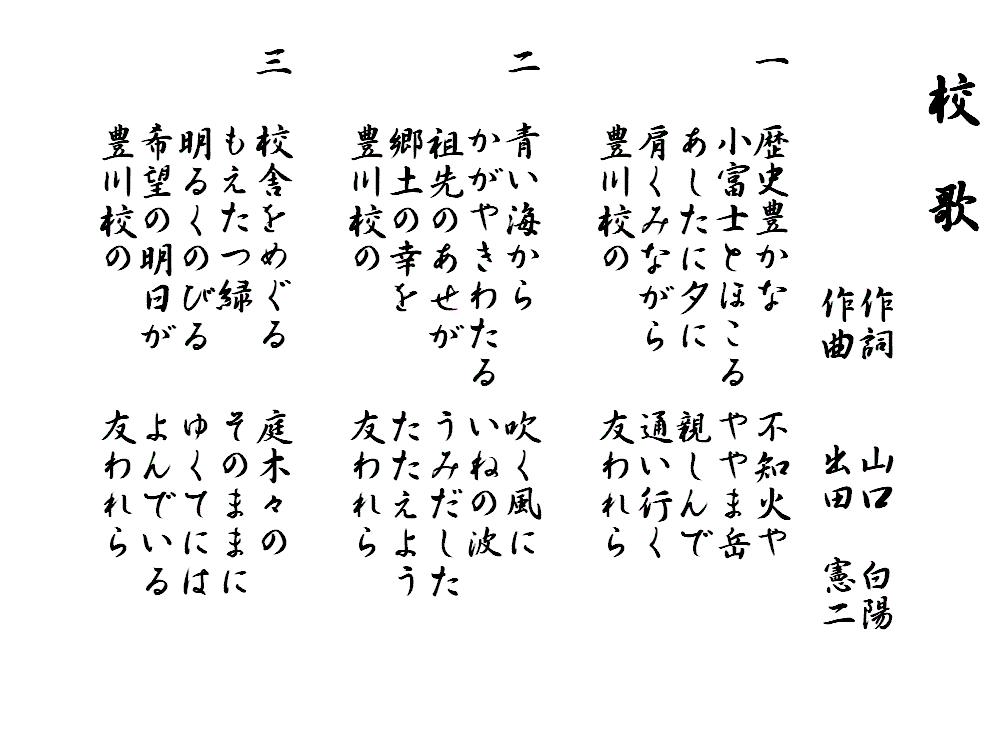 校歌
作詞 山口 白陽
作曲 出田 憲二
一
歴史豊かな 不知火や
小富士とほこる ややま岳
あしたに夕に 親しんで
肩くみながら 通い行く
豊川校の 友われら
二
青い海から 吹く風に
かがやきわたる いねの波
祖先のあせが うみだした
郷土の幸を たたえよう
豊川校の 友われら
三
校舎をめぐる 庭木々の
もえたつ緑 そのままに
明るくのびる ゆくてには
希望の明日が よんでいる
豊川校の 友われら